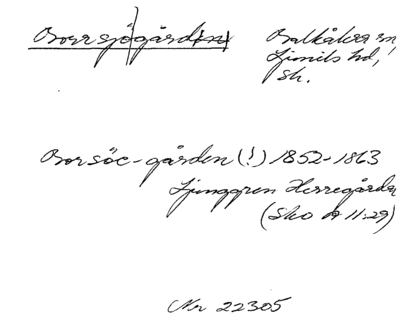 Borrsjögården Balkåkra sn,
Ljunits hd,
Sk.
Borsöe-gården (!) 1852-1863
Ljunggren Herregårdar
(Sko 11:29)
Nr 22305